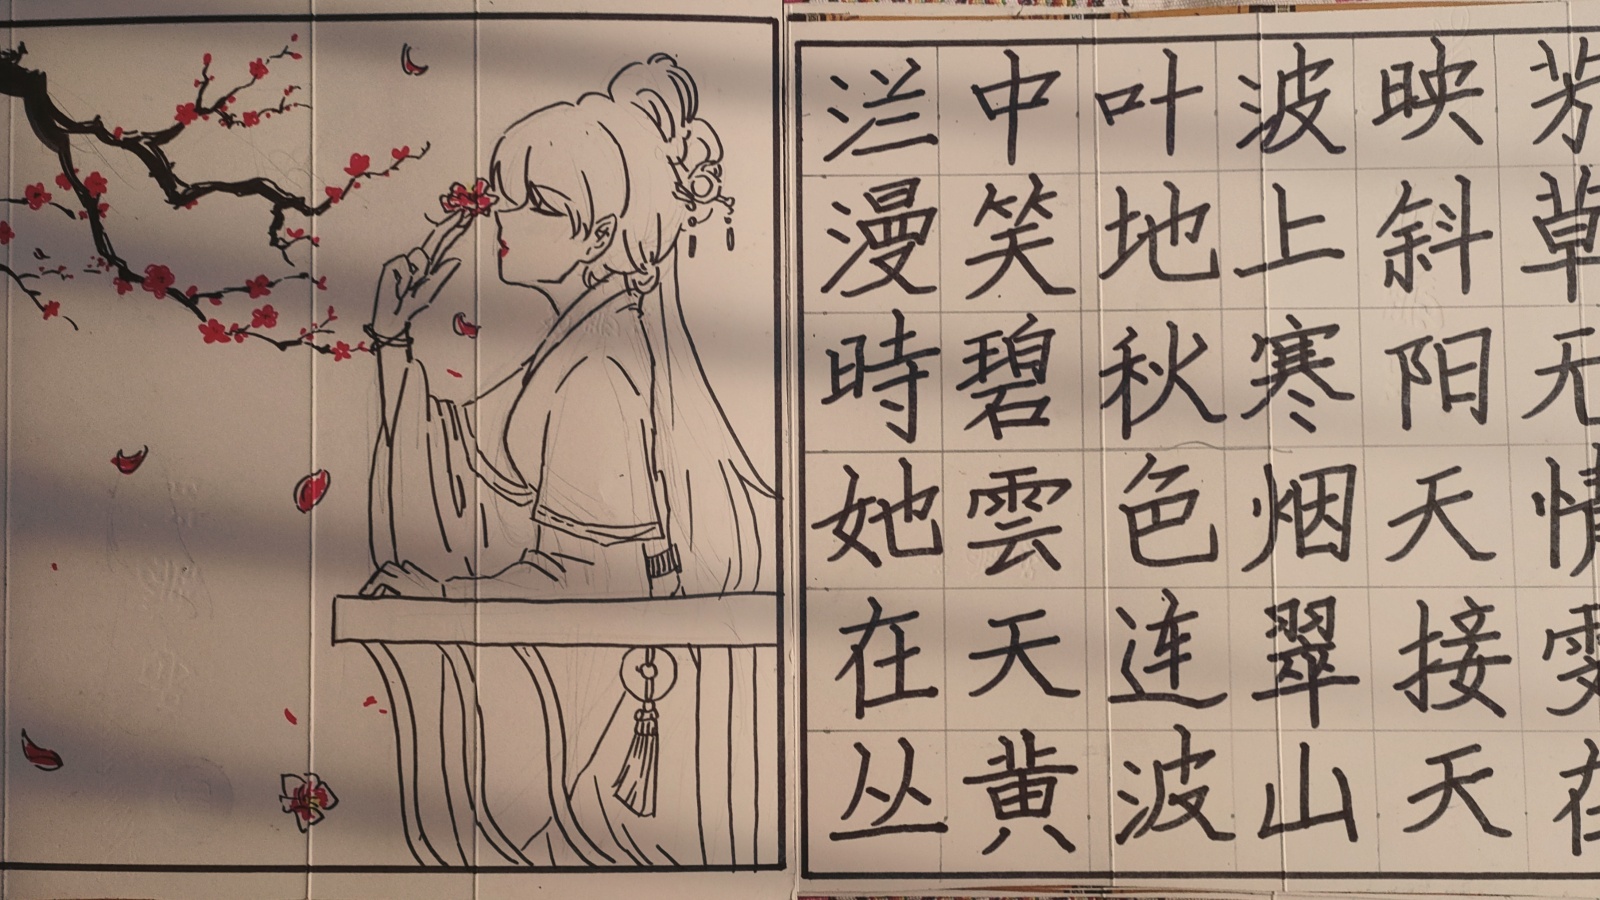 烂漫時她在丛
中笑碧雲天黄
叶地秋色连波
波上寒烟翠山
映斜阳天接天
芳草无情在